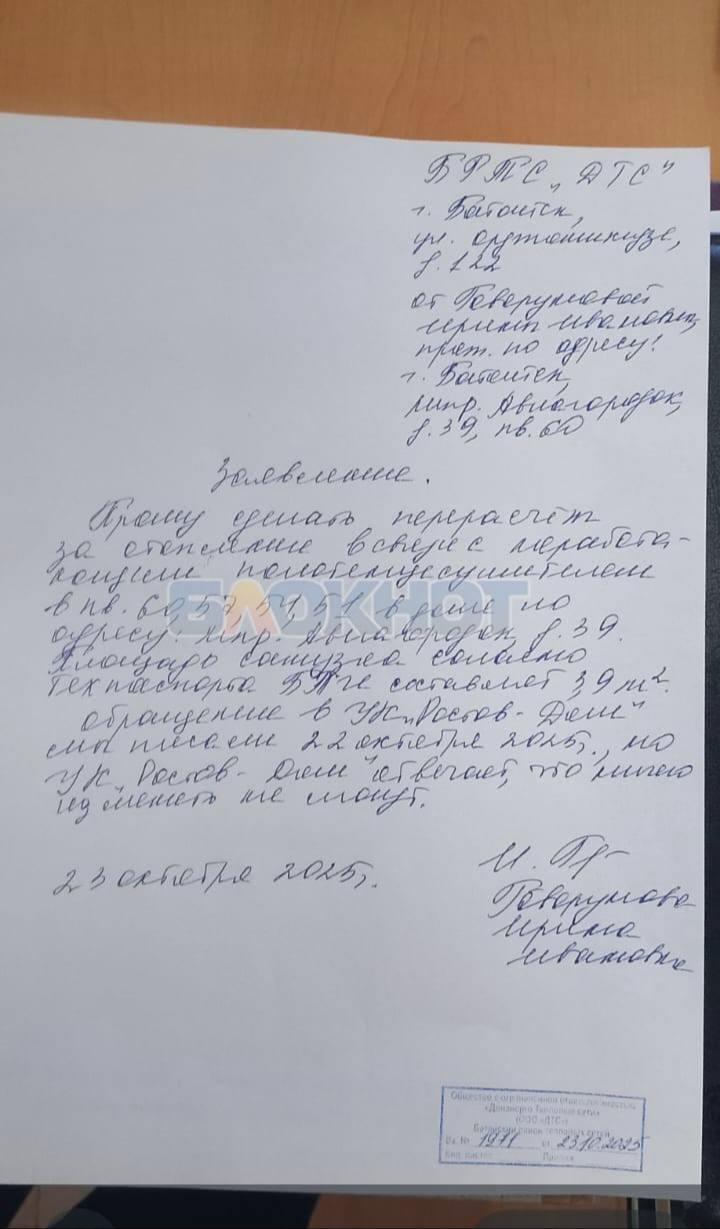 БРТС „ДТС"
г. Батайск,
ул. Орджоникидзе,
д. 122
от Говоруновой
Ирины Ивановны,
прож. по адресу:
г. Батайск,
мкр. Авиагородок,
д. 39, кв. 60
Заявление.
Прошу сделать перерасчёт
за отопление в связи с неработа-
ющим полотенцесушителем
в кв. 60, 57, 54, 51 в доме по
адресу мкр. Авиагородок, д. 39.
Площадь санузла согласно
техпаспорта БТИ составляет 39 м².
обращение в УК „Ростов-Дом"
мы писали 22 октября 2025г., но
УК „Ростов-Дом" отвечает, что ничего
изменить не могут.
23 октября 2025г.
Говорунова
Ирина
Ивановна
БЛОКНОТ
Общество с ограниченной ответственностью
«Донэнерго Тепловые сети»
(ООО «ДТС»)
Батайский район тепловых сетей
Вх. № 1971 от 23.10.2025
Кол. листов